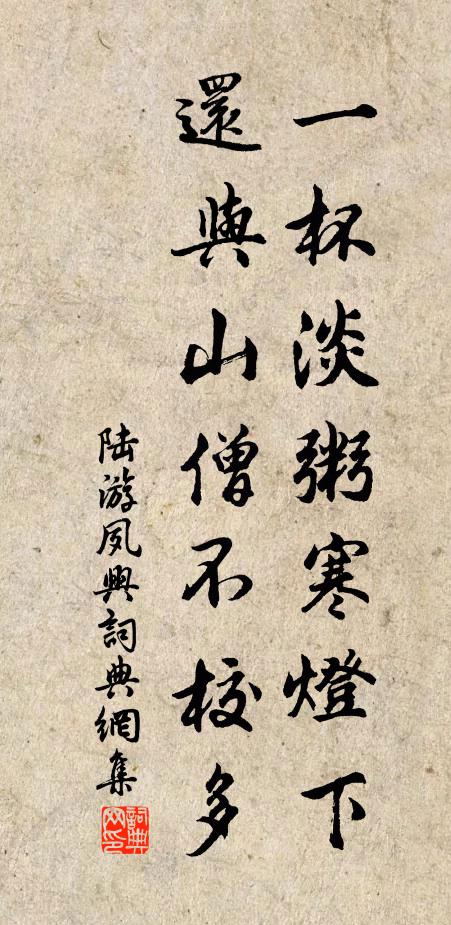 一杯淡粥寒燈下
還與山僧不校多
陆游夙興詞典網集
詞典
网印